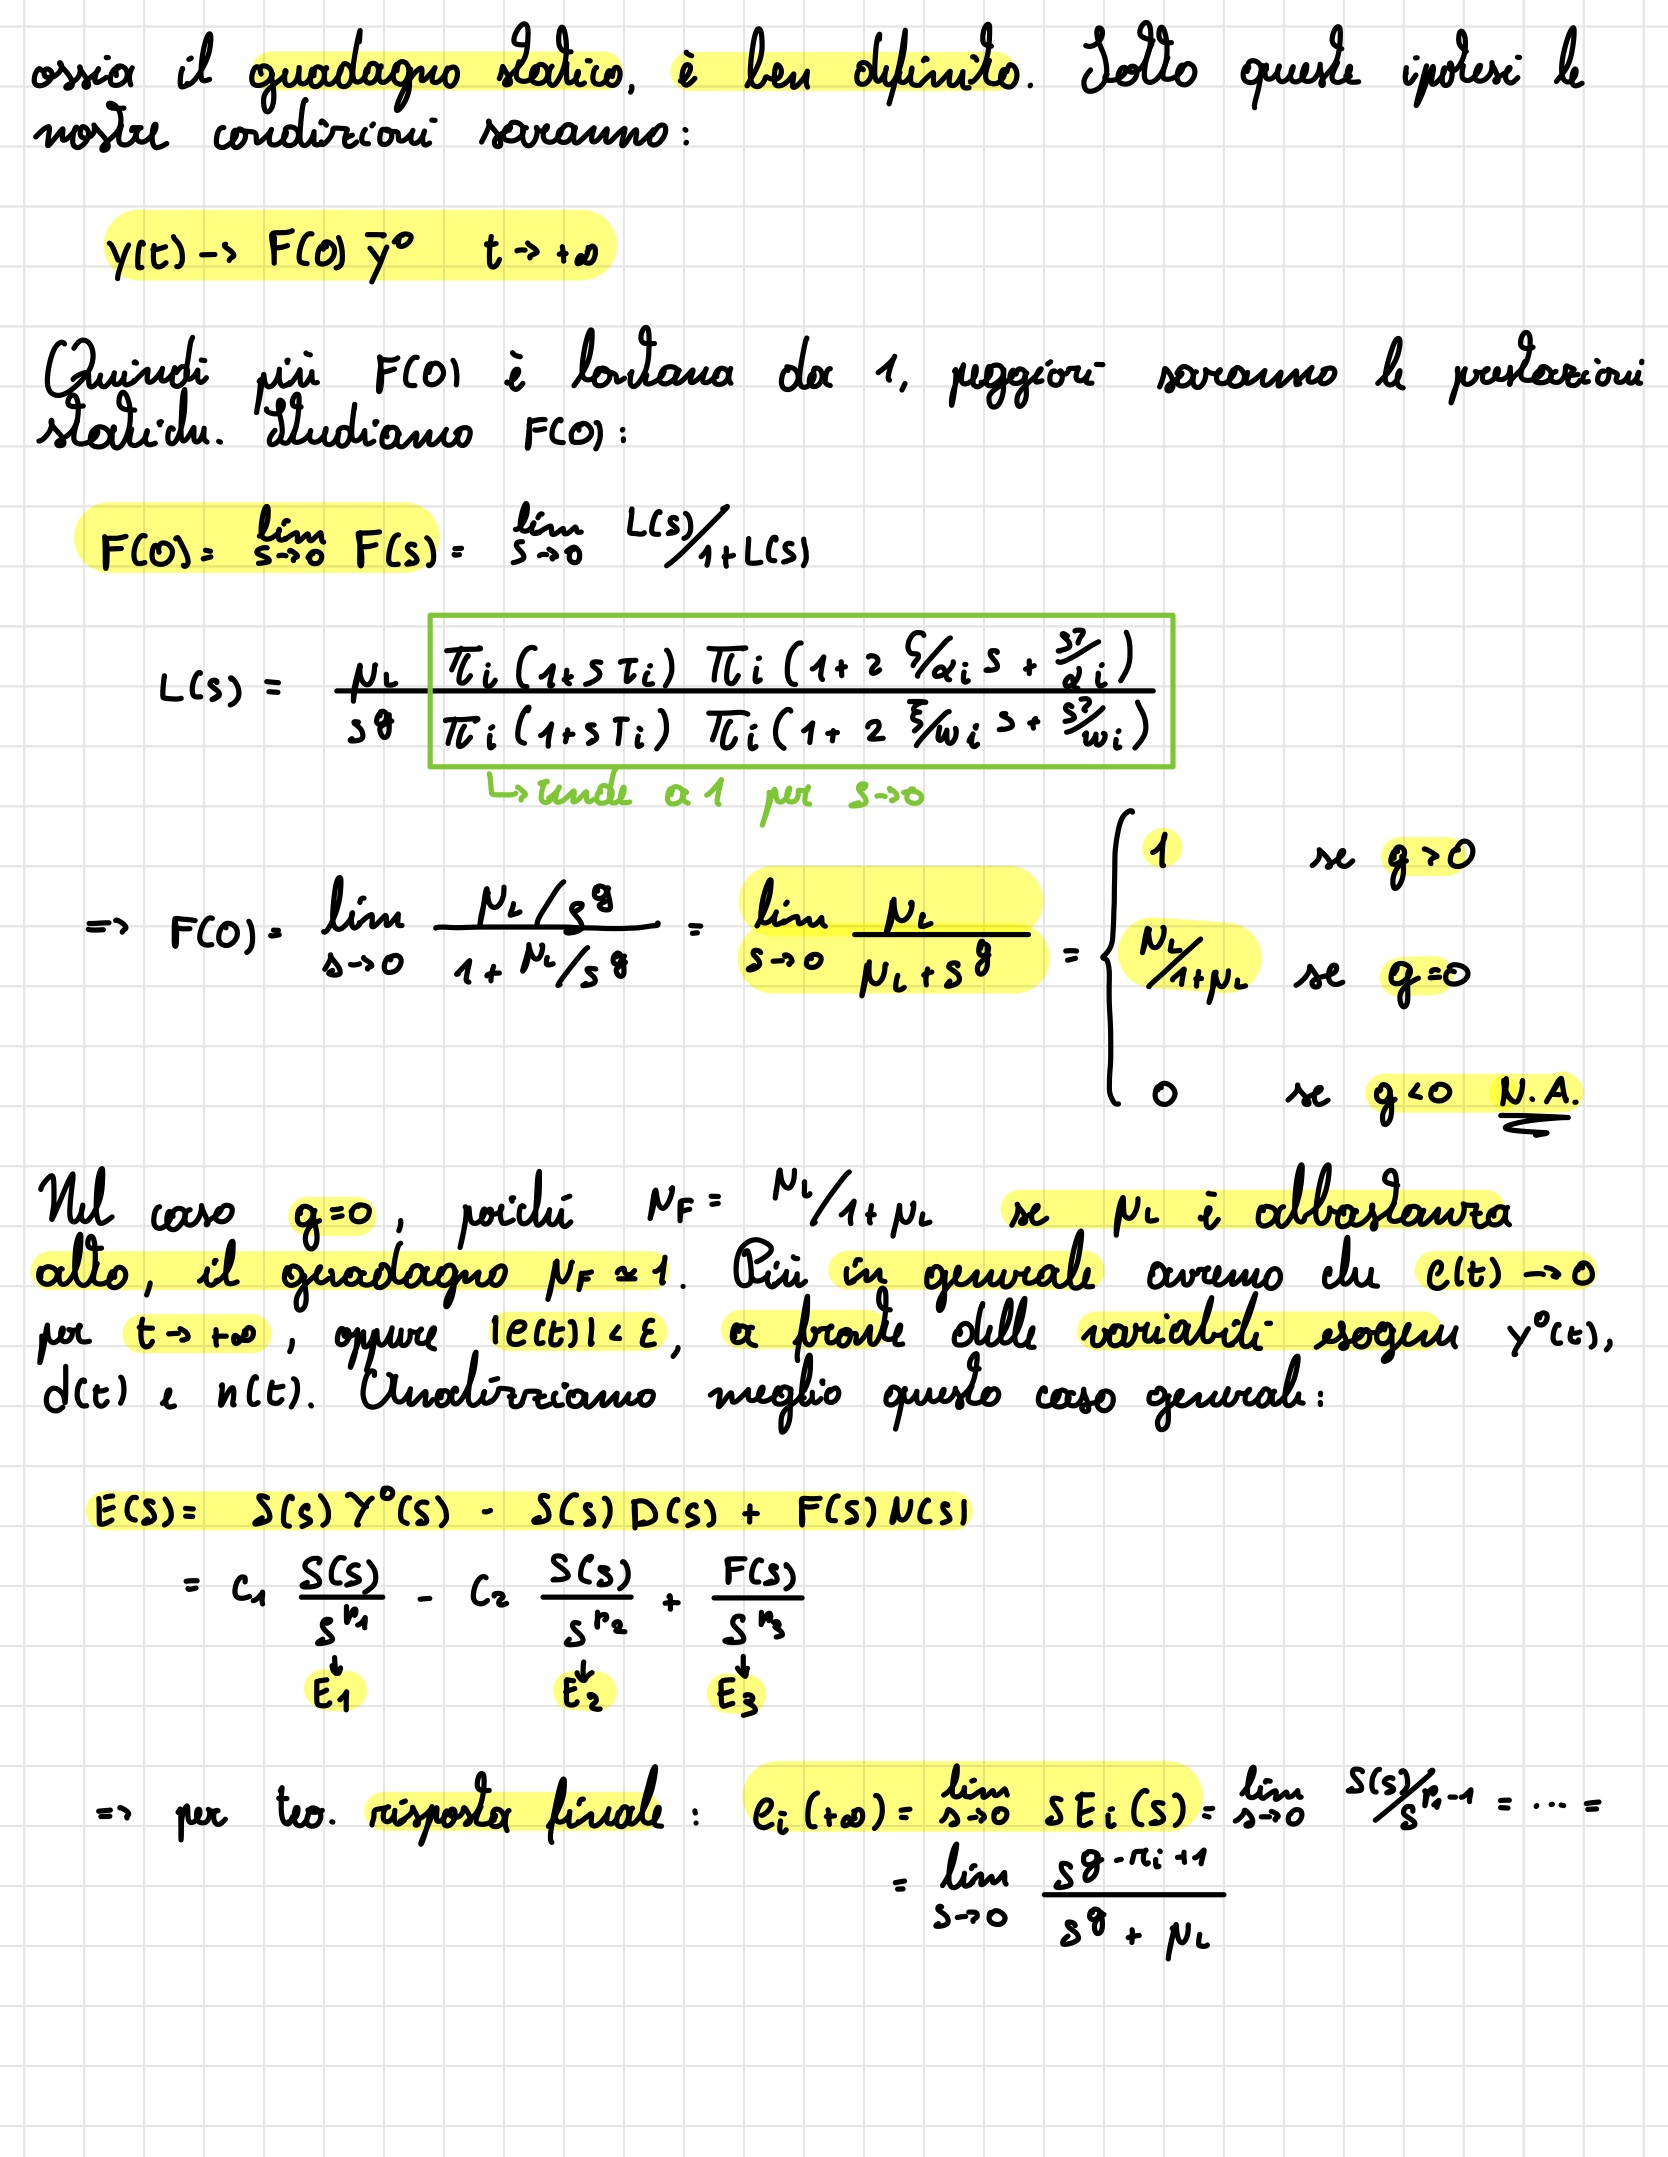 ossia il guadagno statico, è ben definito. Sotto queste ipotesi le
nostre condizioni saranno:
y(t) -> F(0) ȳ° t -> +∞
Quindi più F(0) è lontana da 1, peggiori saranno le prestazioni
statiche. Studiamo F(0):
F(0) = lim s->0 F(s) = lim s->0 L(s)/1+L(s)
L(s) = μL/s^g · πi (1+sτi) πi (1+2 ζ/αi s + s²/αi) / πi (1+sTi) πi (1+2 ξ/ωi s + s²/ωi)
↳ tende a 1 per s->0
=> F(0) = lim s->0 (μL/s^g) / (1+ μL/s^g) = lim s->0 μL / (μL + s^g) = { 1 se g>0
μL/1+μL se g=0
0 se g<0 N.A.
Nel caso g=0, poiché μF = μL/1+μL se μL è abbastanza
alto, il guadagno μF ≃ 1. Più in generale avremo che e(t) -> 0
per t -> +∞, oppure |e(t)| < ε, a fronte delle variabili esogene y°(t),
d(t) e n(t). Analizziamo meglio questo caso generale:
E(s) = S(s) Y°(s) - S(s) D(s) + F(s) N(s)
= C1 S(s)/s^r1 - C2 S(s)/s^r2 + F(s)/s^r3
↓ E1 ↓ E2 ↓ E3
=> per teo. risposta finale: ei(+∞) = lim s->0 s Ei(s) = lim s->0 S(s)/s^r1-1 = ... =
= lim s->0 s^g-ri+1 / (s^g + μL)